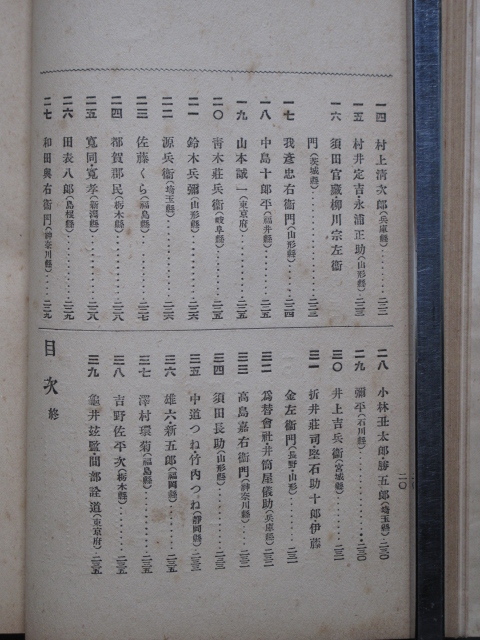 一四 村上清次郎（兵庫縣）……二二三
一五 村井定吉永浦正助（山形縣）…二二三
一六 須田官藏柳川宗左衞
門（茨城縣）……二二三
一七 我彥忠右衞門（山形縣）……二二四
一八 中島十郎平（福井縣）……二二五
一九 山本誠一（東京府）……二二五
二〇 靑木莊兵衞（岐阜縣）……二二五
二一 鈴木兵彌（山形縣）……二二六
二二 源兵衞（埼玉縣）……二二六
二三 佐藤くら（福島縣）……二二七
二四 都賀郡民（栃木縣）……二二八
二五 寬同・寬孝（新潟縣）……二二八
二六 田表八郎（島根縣）……二二九
二七 和田與右衞門（神奈川縣）……二二九
二〇
二八 小林丑太郎勝五郎（埼玉縣）・二三〇
二九 彌平（石川縣）……二三〇
三〇 井上吉兵衞（宮城縣）……二三一
三一 折井莊司・堅石助十郎伊藤
金左衞門（長野・山形）……二三一
三二 爲替會社・井筒屋儀助（兵庫縣）二三一
三三 高島嘉右衞門（神奈川縣）……二三二
三四 須田長助（山形縣）……二三二
三五 中道つね・竹內つね（靜岡縣）二三三
三六 雄六新五郎（福岡縣）……二三三
三七 澤村環菊（福島縣）……二三五
三八 吉野佐平次（栃木縣）……二三五
三九 龜井玆監・間部詮道（東京府）二三五
目次 終